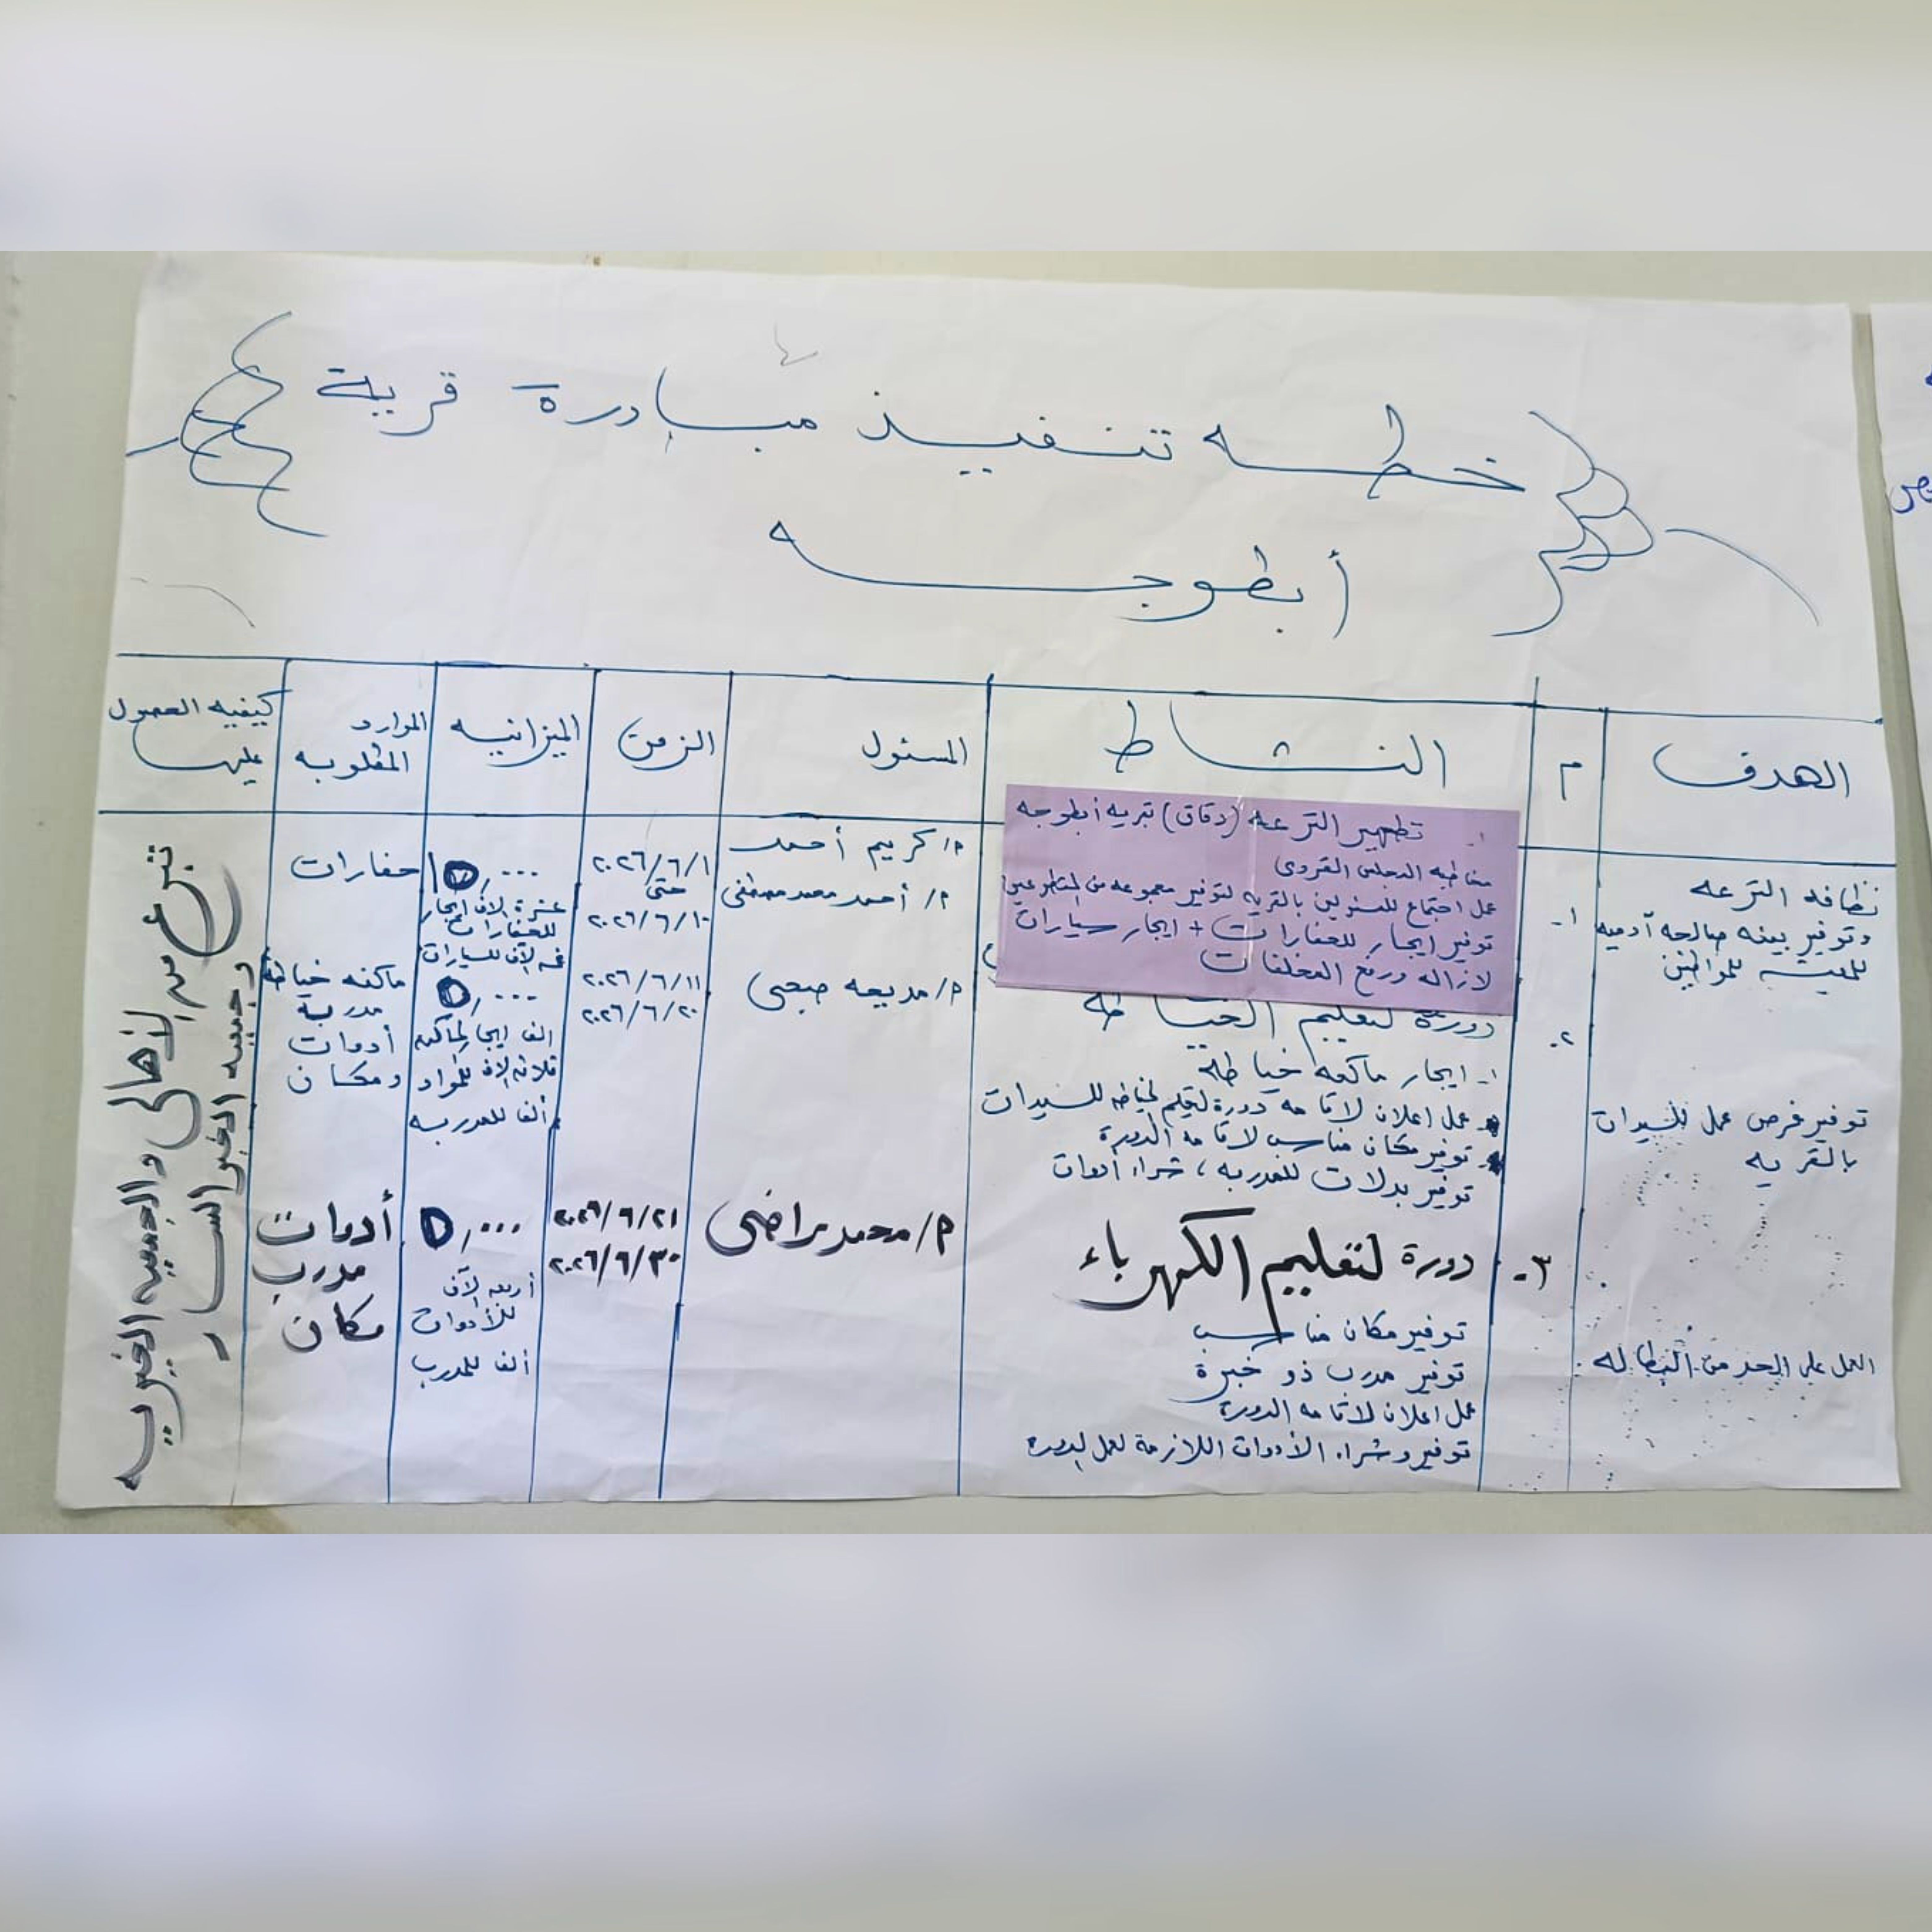 خطه تنفيذ مبادرة قرية
أبطوجه
الهدف
م
النشاط
المسئول
الزمن
الميزانيه
الموارد
المطلوبه
كيفيه الحصول
عليها
نظافه الترعه
وتوفير بيئه صالحه آدميه
للمواطنين
١-
١-
تطهير الترعه (دقاق) بقريه أبطوجه
مخاطبه المجلس القروى
عمل اجتماع للمسئولين بالقريه لتوفير مجموعه من المتطوعين
توفير ايجار للحفارات + ايجار سيارات
لازاله ورفع المخلفات
م/ كريم أحمد
م/ أحمد محمد مصطفى
٢٠٢٦/٦/١
حتى
٢٠٢٦/٦/١٠
١٥,٠٠٠
عشرة الاف ايجار
للحفارات
خمسه الآف للسيارات
حفارات
توفير فرص عمل للسيدات
بالقريه
٢-
دورة لتعليم الخياطه
١- ايجار ماكينه خياطة
عمل اعلان لاقامه دورة لتعليم الخياطه للسيدات
توفير مكان مناسب لاقامه الدورة
توفير بدلات للمدربه ، شراء أدوات
م/ مديحه صبحى
٢٠٢٦/٦/١١
٢٠٢٦/٦/٢٠
٥,٠٠٠
الف ايجار لماكينه
ثلاثه الاف للمواد
ألف للمدربه
ماكنه خياطه
مدربة
أدوات
ومكان
العمل على الحد من البطاله
٣-
دورة لتعليم الكهرباء
توفير مكان مناسب
توفير مدرب ذو خبرة
عمل اعلان لاقامه الدورة
توفير وشراء الأدوات اللازمة لعمل الدوره
م/ محمد راضى
٢٠٢٦/٦/٢١
٢٠٢٦/٦/٣٠
٥,٠٠٠
أربعه الآف
للأدوات
ألف للمدرب
أدوات
مدرب
مكان
تبرع من الأهالى والجمعيه الخيريه
وجمعيه الخير السار